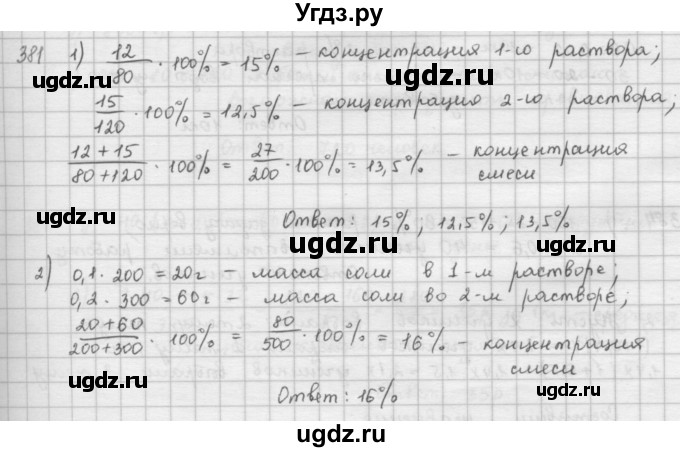 Угдз.ру
381 1) 12/80 · 100% = 15% – концентрация 1-го раствора;
ugdz.ru ugdz.ru
15/120 · 100% = 12,5% – концентрацию 2-го раствора;
12+15/80+120 · 100% = 27/200 · 100% = 13,5% – концентрация смеси
ugdz.ru
Ответ: 15%; 12,5%; 13,5%
ugdz.ru ugdz.ru
2) 0,1 · 200 = 20г – масса соли в 1-м растворе;
0,2 · 300 = 60г – масса соли во 2-м растворе;
ugdz.ru
20+60/200+300 · 100% = 80/500 · 100% = 16% – концентрация смеси
ugdz.ru ugdz.ru
Ответ: 16%
ugdz.ru